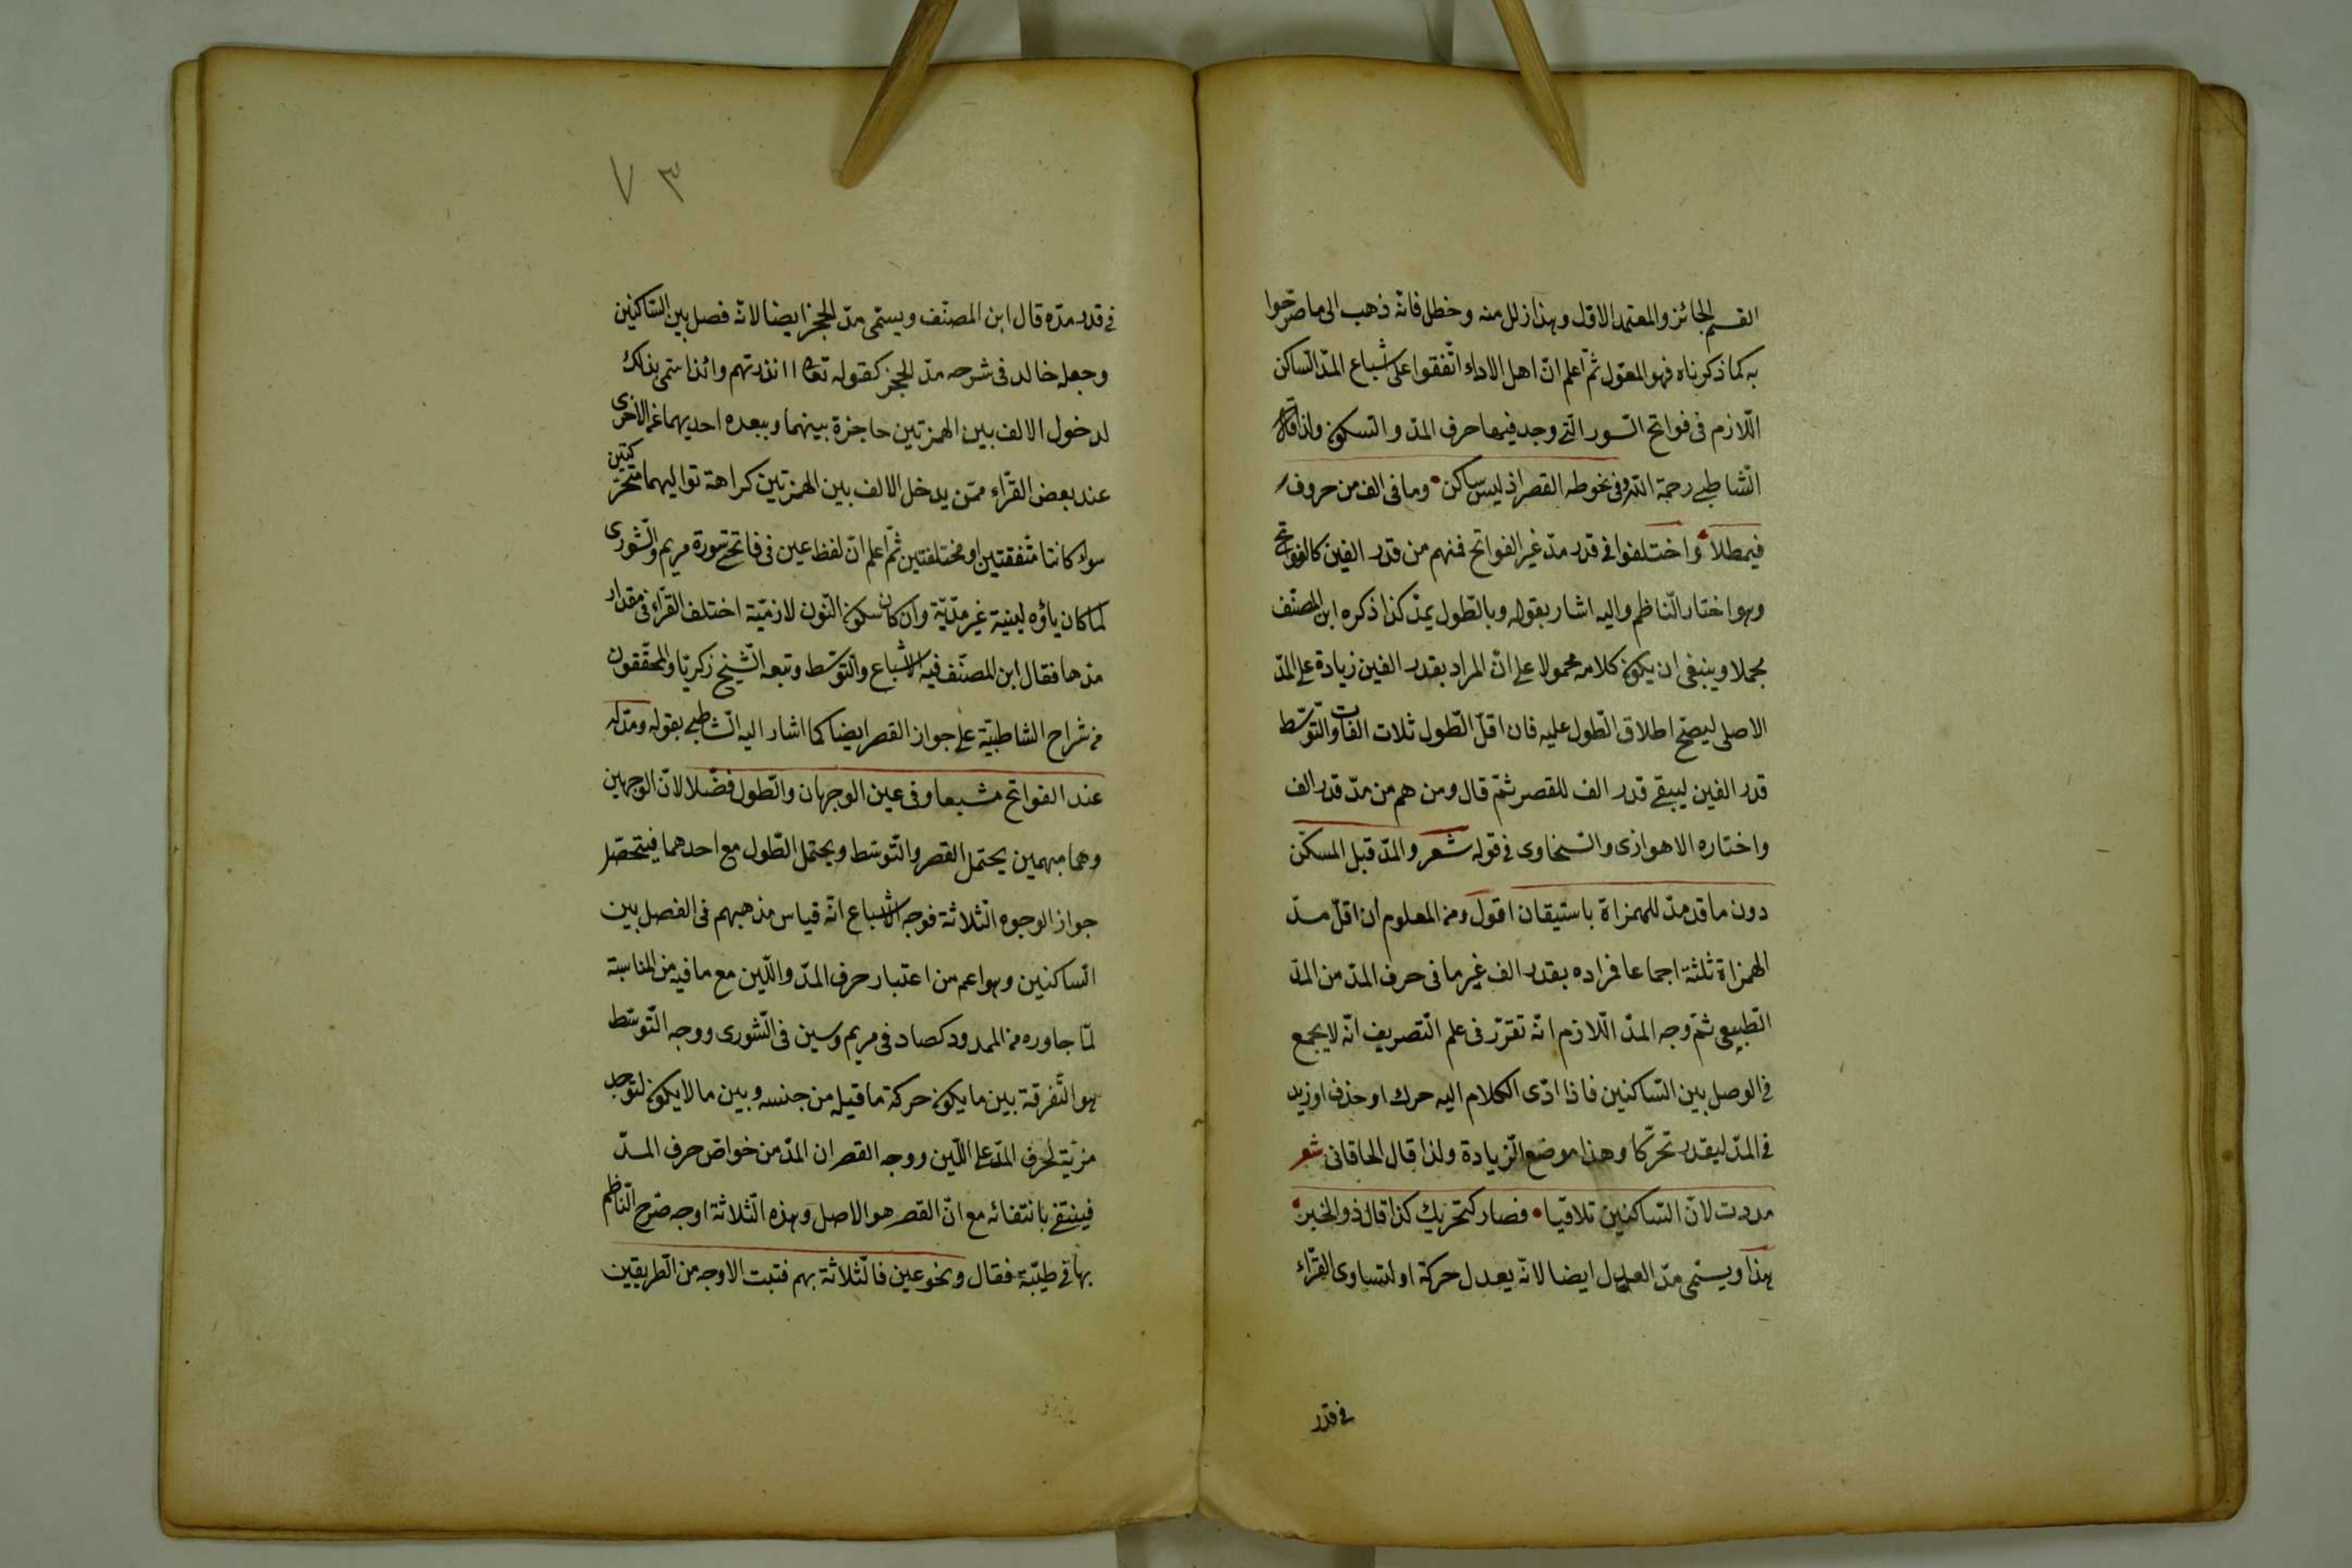 القسم الجائز والمعتمد الاول وهذا زلل منه وخطل فانّه ذهب الى ما صرّحوا
به كما ذكرناه فهو المعوّل ثمّ اعلم انّ اهل الاداء اتّفقوا على اشباع المدّ السّاكن
اللّازم فى فواتح السّور الّتى وجد فيها حرف المدّ والسّكون ولذا قال
الشّاطبى رحمة اللّه وفى نحو طه القصر اذ ليس ساكن • وما فى الف من حروف
فيمطلا • واختلفوا فى قدر مدّ غير الفواتح فمنهم من قدر الفين كالفواتح
وهو اختار النّاظم واليه اشار بقوله وبالطّول يمدّ كذا ذكره ابن المصنّف
مجملا وينبغى ان يكون كلامه محمولا على انّ المراد بقدر الفين زيادة على المدّ
الاصلى ليصحّ اطلاق الطّول عليه فان اقلّ الطّول ثلات الفات والتّوسّط
قدر الفين ليبقى قدر الف للقصر ثمّ قال ومن هم من مدّ قدر الف
واختاره الاهوازى والسّخاوى فى قوله شعر والمدّ قبل المسكّن
دون ما قد مدّ للهمزاة باستيقان اقول ومن المعلوم ان اقلّ مدّ
الهمزاة ثلثة اجماعا فراده بقدر الف غير ما فى حرف المدّ من المدّ
الطّبيعى ثمّ وجه المدّ اللّازم انّه تقرّر فى علم التّصريف انّه لا يجمع
فى الوصل بين السّاكنين فاذا ادّى الكلام اليه حرك او حذف او زيد
فى المدّ ليقدر تحرّكا وهذا موضع الزّيادة ولذا قال الخاقانى شعر
مددت لانّ السّاكنين تلاقيا • فصار كتحريك كذا قال ذو الخبر •
هذا ويسمّى مدّ العدل ايضا لانّه يعدل حركة او لتساوى القرّاء
فى قدر
٧٣
فى قدر مدّه قال ابن المصنّف ويسمّى مدّ الحجز ايضا لانّه فصل بين السّاكنين
وجعله خالد فى شرحه مدّ الحجز كقوله تعا أانذرتهم وائذا سمّى بذلك
لدخول الالف بين الهمزتين حاجزة بينهما وببعده احديهما عن الاخرى
عند بعض القرّاء ممّن يدخل الالف بين الهمزتين كراهة تواليهما متحرّكتين
سواء كانتا متّفقتين او مختلفتين ثمّ اعلم انّ لفظ عين فى فاتحتى سورة مريم والشّورى
لما كان ياؤه لينية غير مدّيّة وان كان سكون النّون لازميّة اختلف القرّاء فى مقدار
مدها فقال ابن المصنّف فيه الاشباع والتّوسّط وتبعه الشّيخ زكريّا والمحقّقون
من شراح الشاطبيّة على جواز القصر ايضا كما اشار اليه الشّاطبى بقوله ومدّ له
عند الفواتح مشبعا وفى عين الوجهان والطّول فضّلا لانّ الوجهين
وهما مبهمين يحتمل القصر والتّوسّط ويحتمل الطّول مع احدهما فيتحصّل
جواز الوجوه الثّلاثة فوجه الاشباع انّه قياس مذهبهم فى الفصل بين
السّاكنين وهو اعم من اعتبار حرف المدّ واللّين مع ما فيه من المناسبة
لمّا جاوره من الممدود كصاد فى مريم وسين فى الشّورى ووجه التّوسّط
هو التّفرقة بين ما يكون حركة ما قبله من جنسه وبين ما لا يكون لتوجد
مزيّة لحرف المدّ على اللّين ووجه القصر ان المدّ من خواصّ حرف المدّ
فينتفى بانتفائه مع انّ القصر هو الاصل وهذه الثّلاثة اوجه صرّح النّاظم
بها فى طيّبة فقال ونحو عين فالثّلاثة بهم فتبت الاوجه من الطّريقين